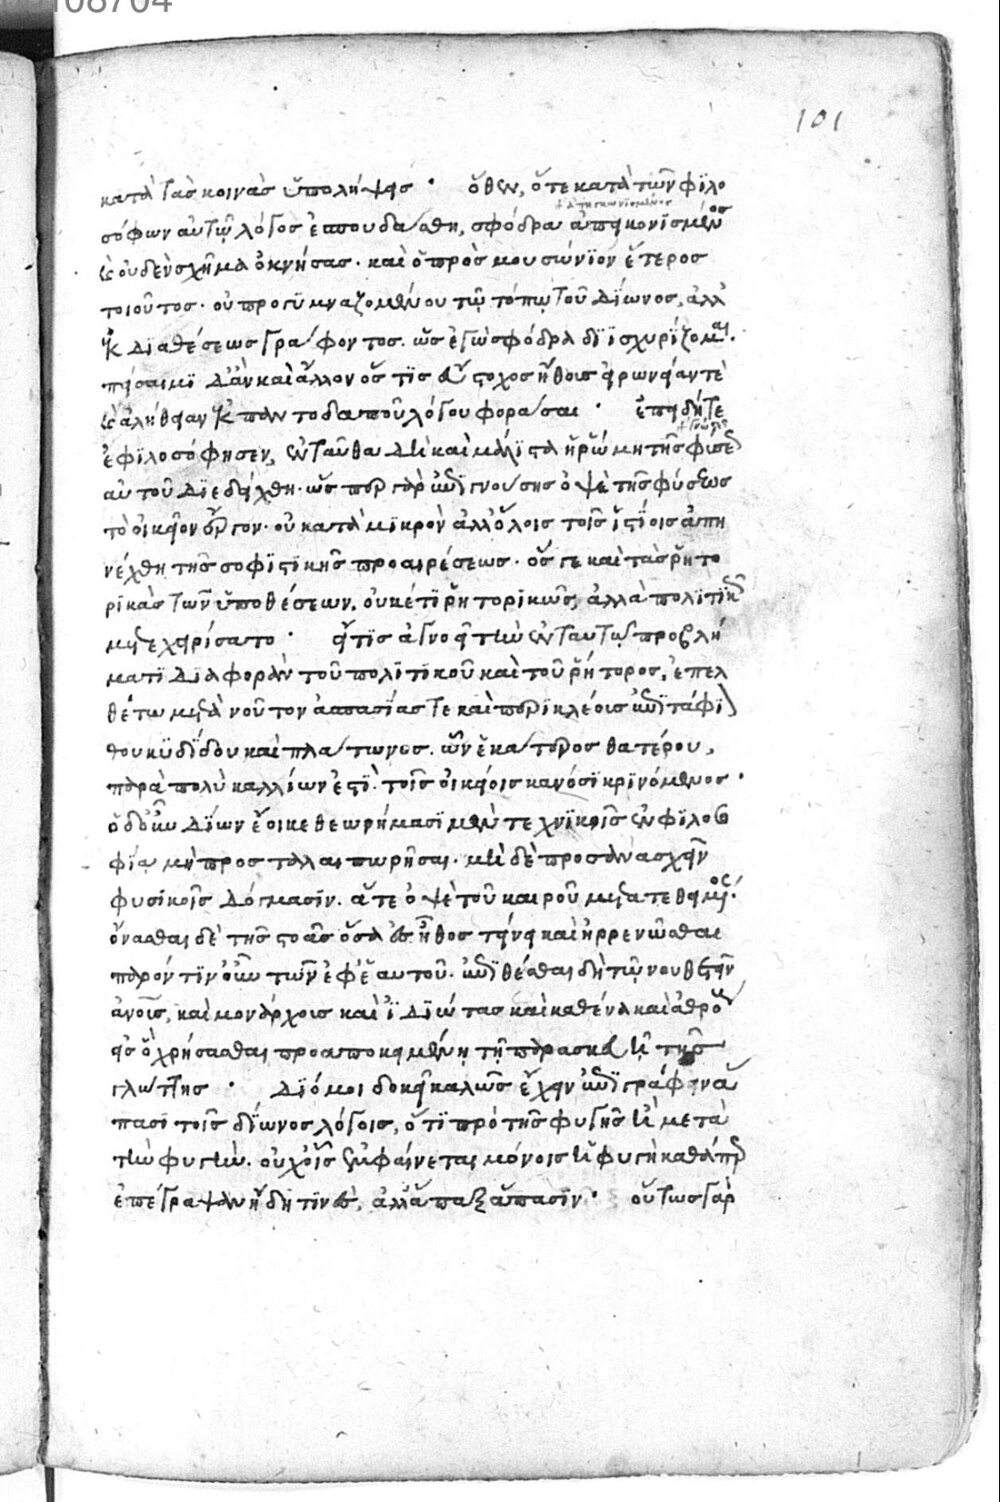 101
κατὰ τὰς κοινὰς ὑπολήψεις · ὅθεν, ὅ τε κατὰ τῶν φιλο
σόφων αὐτῷ λόγος ἐσπουδάσθη, σφόδρα ἀπηκονισμένος
καὶ οὐδὲν σχῆμα ὀκνήσας · καὶ ὁ πρὸς μουσώνιον ἕτερος
τοιοῦτος · οὐ προσγυμναζομένου τῷ τόπῳ τοῦ Δίωνος, ἀλλ'
ἐκ διαθέσεως γράφοντος. ὡς ἐγὼ σφόδρα διισχυρίζομαι.
πείσαιμι δ' ἂν καὶ ἄλλον ὅστις εὔστοχος ἤθους εἴρωνείαν τὲ
καὶ ἀλήθειαν ἐκ παντοδαποῦ λόγου φορᾶσαι · ἐπειδή τε
ἐφιλοσόφησεν, ἐνταῦθα δὴ καὶ μάλιστα ἡ ῥώμη τῆς φύσεως
αὐτοῦ διεδείχθη · ὥσπερ γὰρ ἐπιγνούσης ὀψὲ τῆς φύσεως
τὸ οἰκεῖον ἔργον · οὐ κατὰ μικρὸν ἀλλ' ὅλοις τοῖς ἱστίοις ἀπη
νέχθη τῆς σοφιστικῆς προαιρέσεως · ὅς γε καὶ τὰς ῥητο
ρικὰς τῶν ὑποθέσεων, οὐκέτι ῥητορικῶς, ἀλλὰ πολιτικῶς
μετεχειρίσατο · εἴ τις ἀγνοεῖ τὴν ἐν ταυτῷ προβλή
ματι διαφορὰν τοῦ πολιτικοῦ καὶ τοῦ ῥήτορος, ἐπελ
θέτω μετὰ νοῦ τὸν ἀσπασίας τε καὶ περικλέους ἐπιτάφιον
θουκυδίδου καὶ πλάτωνος. ὧν ἑκάτερος θατέρου,
παρὰ πολὺ καλλίων ἐστὶ τοῖς οἰκείοις κανόσι κρινόμενος ·
ὁ δ' οὖν Δίων ἔοικε θεωρήμασι μὲν τεχνικοῖς ἐν φιλοσο
φίᾳ μὴ προσταλαιπωρῆσαι · μὴ δὲ προσανασχεῖν
φυσικοῖς δόγμασιν. ἅτε ὀψὲ τοῦ καιροῦ μετατεθειμένος.
ὄνασθαι δὲ τῆς στοᾶς ὅσα εἰς ἦθος τείνει καὶ ἠρρενῶσθαι
παρ' ὁντινοῦν τῶν ἐφ' ἑαυτοῦ · ἐπιθέσθαι δὴ τῷ νουθετεῖν
ἀνθρώπους, καὶ μονάρχους καὶ ἰδιώτας καὶ καθένα καὶ ἀθρόους
εἰς ὃ χρήσασθαι προαποκειμένῃ τῇ παρασκευῇ τῆς
γλώττης · Διό μοι δοκεῖ καλῶς ἔχειν ἐπιγράφειν ἅ
πασι τοῖς δίωνος λόγοις, ὅτι πρὸ τῆς φυγῆς ἢ μετὰ
τὴν φυγήν. οὐχ οἷς ἐμφαίνεται μόνοις ἡ φυγὴ καθάπερ
ἐπέγραψαν ἤδη τινές, ἀλλ' ἅπαξ ἅπασιν · οὕτως γὰρ